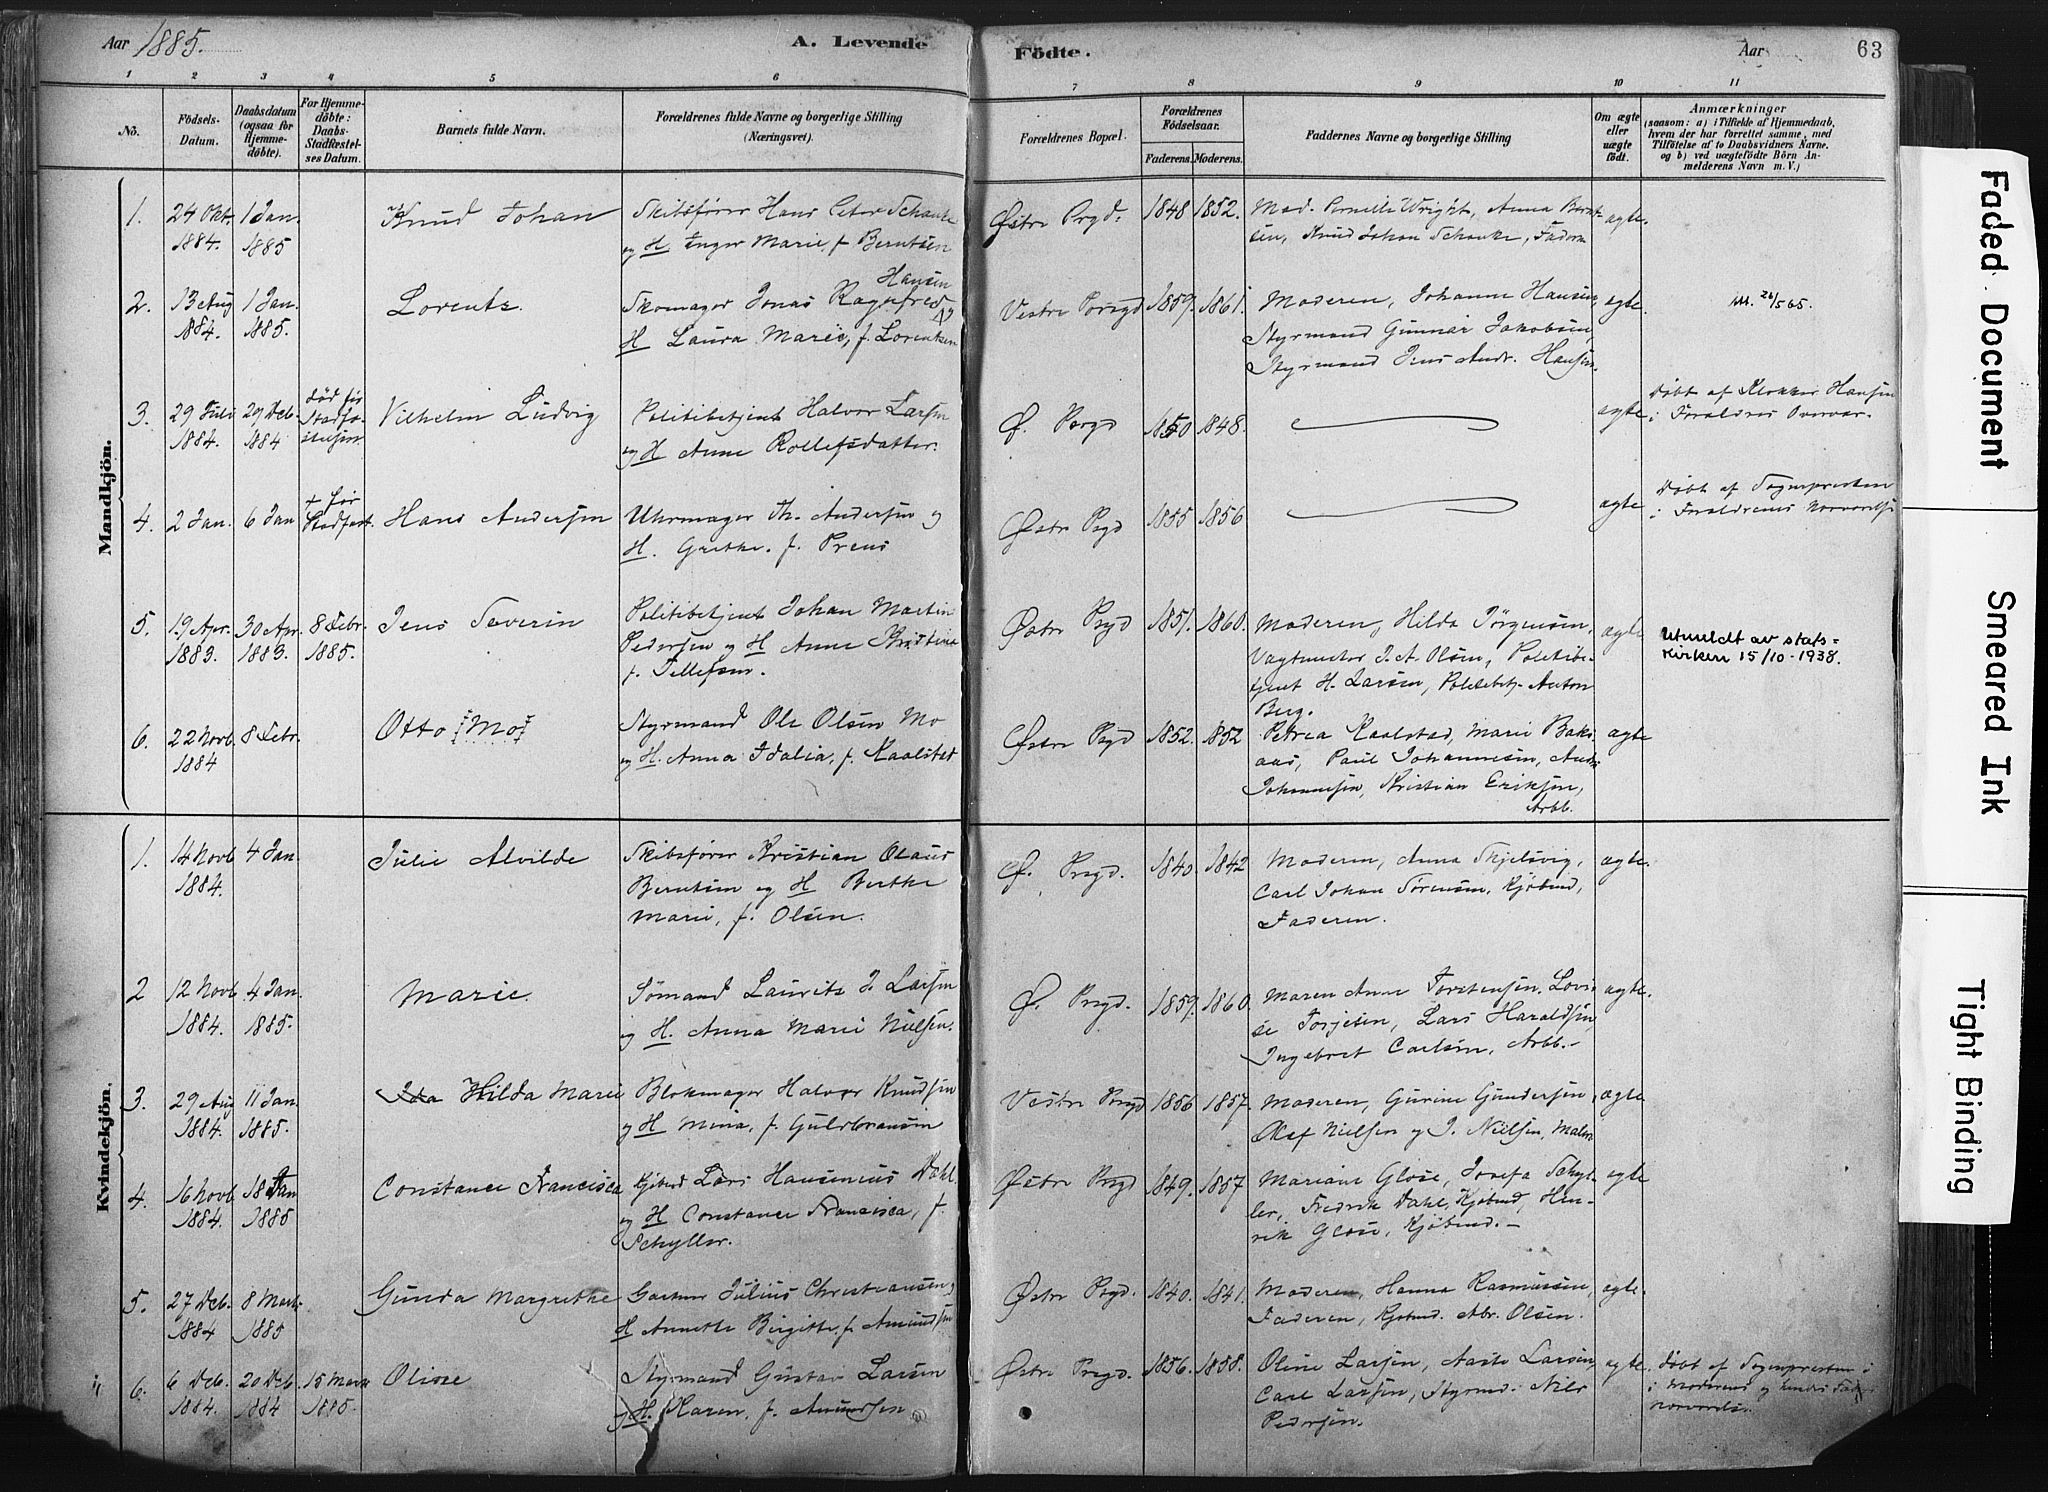 Aar 1885.
A. Levende
Födte.
Aar
63
1 2 3 4 5 6 7 8 9 10 11
No.
Födsels-Datum.
Daabsdatum (ogsaa for Hjemme-döbte).
For Hjemme-döbte: Daabs-Stadfæstel-ses Datum.
Barnets fulde Navn.
Forældrenes fulde Navne og borgerlige Stilling (Næringsvei).
Forældrenes Bopæl.
Forældrenes Födselsaar.
Faderens. Moderens.
Faddernes Navne og borgerlige Stilling
Om ægte eller uægte födt.
Anmærkninger
(saasom: a) i Tilfælde af Hjemmedaab,
hvem der har forrettet samme, med
Tilföielse af to Daabsvidners Navne.
og b) ved uægtefödte Börn An-
melderens Navn m. V.)
Mandkjön.
1. 24 Okt. 1884. 1 Jan 1885 Knud Johan
Skibsfører Hans Peter Schanke
og H Inger Marie, f. Berntsen
Østre Prgd. 1848 1852.
Mad. Pernelle Wright, Anna Bernt-
sen, Knud Johan Schanke, Faderen
ægte.
2. 13 Aug 1884. 1 Jan. 1885. Lorentz
Skomager Jonas Ragnfred Hansen og
H Laura Marie, f. Lorentsen
Vestre Porsgd 1859. 1861.
Moderen, Johanne Hansen,
Styrmand Gunnar Jakobsen,
Styrmand Jens Andr. Hansen.
ægte.
3. 29 Juli 1884. 29 Deb. 1884 død før Stadfæstelsen Vilhelm Ludvig
Politibetjent Halvor Larsen
og H Anne Rollefsdatter.
Ø. Porgd 1850 1848.
ægte
Døbt af Klokker Hansen
i Forældres Overvær.
4. 2 Jan. 6 Jan + før Stadfæst. Hans Andersen
Uhrmager Th. Andersen og
H. Grethe. f. Preus
Østre Prgd 1855 1856
ægte
Døbt af Sognepresten
i Forældrenes Nærværelse
5. 19 Apr. 1883. 30 Apr. 1883. 8 Febr. 1885. Jens Severin
Politibetjent Johan Martin
Pedersen og H Anne Kristine
f. Tellefsen.
Østre Prgd 1851. 1860.
Moderen, Hilda Jørgensen,
Vagtmester J. A. Olsen, Politibe-
tjent H. Larsen, Politibetj. Anton
Berg.
ægte
Utmeldt av stats=
kirken 15/10-1938.
6. 22 Novb. 1884 8 Febr. Otto Mo
Styrmand Ole Olsen Mo
og H. Anna Idalia, f. Kaalstad
Østre Prgd 1852. 1852
Petrea Kaalstad, Marie Bak-
aas, Paul Johannesen, Andr.
Johannesen, Kristian Eriksen,
Arbb.
ægte
Kvindekjön.
1. 14 Novb 1884. 4 Jan. Julie Alvilde
Skibsfører Kristian Olaus
Berntsen og H Berthe
Marie, f. Olsen.
Ø. Prgd. 1840. 1842
Moderen, Anna Skjelsvig,
Carl Johan Sørensen, Kjøbmd,
Faderen.
ægte.
2 12 Novb 1884. 4 Jan. 1885. Marie.
Sømand Lauritz J. Larsen
og H. Anna Marie Nielsen.
Ø. Prgd. 1859. 1860.
Maren Anne Torstensen, Lovi-
se Torjesen, Lars Haraldsen,
Ingebret Carlsen, Arbb.
ægte.
3. 29 Aug 1884. 11 Jan. 1885. Ida Hilda Marie
Blokmager Halvor Knudsen
og H Mina, f. Guldbransen
Vestre Prgd 1856 1857.
Moderen, Gurine Gundersen,
Olaf Nielsen og J. Nielsen, Maler
ægte
4. 16 Novb 1884. 18 Jan 1885 Constance Francisca
Kjøbmd Lars Hansenius Dahl
og H Constance Francisca, f.
Schyller.
Østre Prgd 1849. 1857
Mariane Glose, Josefa Schyl-
ler, Fredrik Dahl, Kjøbmd, Hen-
rik Glose, Kjøbmd.
ægte
5. 27 Deb. 1884 8 Marts 1885 Gunda Margrethe
Gartner Julius Christiansen og
H Annette Birgitte, f. Amundsen
Østre Prgd. 1840. 1841.
Moderen, Hanna Rasmussen,
Faderen, Kjøbmd. Abr. Olsen.
ægte.
6. 6 Deb. 1884. 20 Deb. 1884 15 Marts 1885. Olisse
Styrmand Gustav Larsen
og H. Karen, f. Amundsen
Østre Prgd. 1856. 1858.
Oline Larsen, Aaste Larsen,
Carl Larsen, Styrmd. Nils
Pedersen.
ægte.
Døbt af Sognepresten i
Moderens og
Nærværelse.
Faded Document
Smeared Ink
Tight Binding